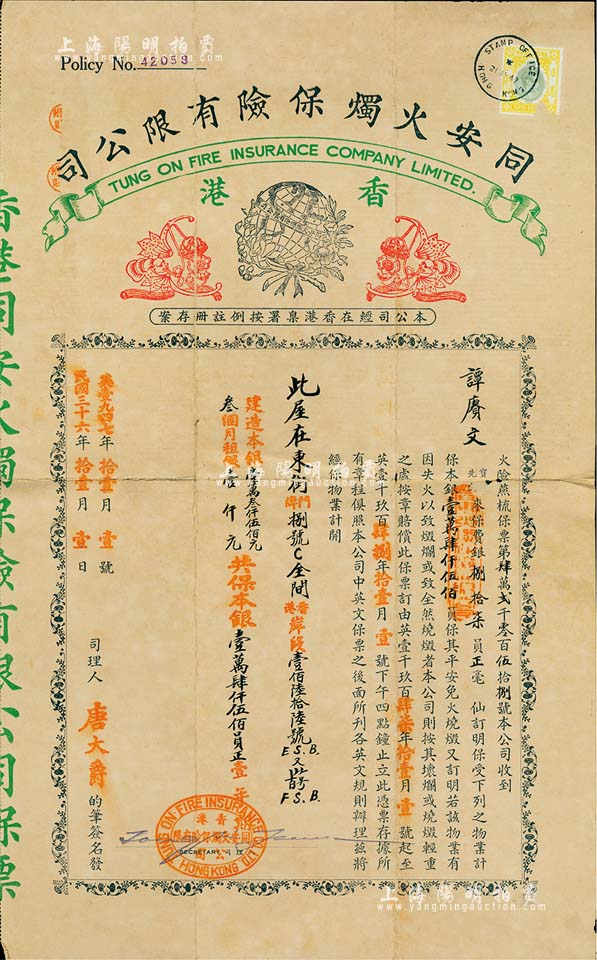 上海陽明拍賣
www.yangmingauction.com
Policy No. 42058
STAMP OFFICE
HONG KONG
同安火燭保險有限公司
TUNG ON FIRE INSURANCE COMPANY LIMITED.
香港
本公司經在香港臬署按例註冊存案
火險蕉梳保票第肆萬弍千零百伍拾捌號本公司收到
譚賡文
寶先 來保費銀捌拾柒員正毫 仙訂明保受下列之物業計
保本銀壹萬肆仟伍佰員保其平安免火燒燬又訂明若該物業有
因失火以致燬爛或致全然燒燬者本公司則按其壞爛或燒燬輕重
之處按章賠償此保票訂由英壹千玖百肆柒年拾壹月壹號起至
英壹千玖百肆捌年拾壹月壹號下午四點鐘止立此憑票存據所
有章程俱照本公司中英文保票之後面所刊各英文規則辦理茲將
經保物業計開
此屋在東街門牌捌號C全間香港岸段壹佰陸拾陸號E.S.B.又 F.S.B.
建造本銀壹萬叁仟伍佰元
叁個月租 壹仟元
共保本銀壹萬肆仟伍佰員正壹年
英壹九四七年拾壹月壹號
民國三十六年拾壹月壹日
司理人唐大爵的筆簽名發
TUNG ON FIRE INSURANCE CO LTD
香港
同安火燭保險有限
公司
SECRETARY 司理
HONG KONG
香港同安火燭保險有限公司保票
上海陽明拍賣
www.yangmingauction.com